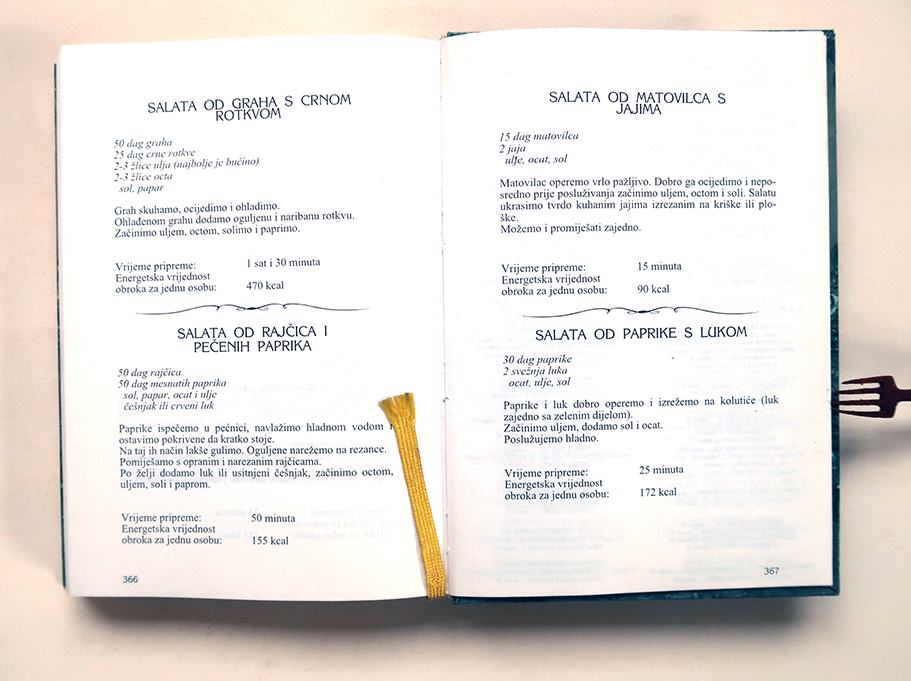 SALATA OD GRAHA S CRNOM
ROTKVOM
50 dag graha
25 dag crne rotkve
2-3 žlice ulja (najbolje je bučino)
2-3 žlice octa
sol, papar
Grah skuhamo, ocijedimo i ohladimo.
Ohlađenom grahu dodamo oguljenu i naribanu rotkvu.
Začinimo uljem, octom, solimo i paprimo.
Vrijeme pripreme: 1 sat i 30 minuta
Energetska vrijednost
obroka za jednu osobu: 470 kcal
SALATA OD RAJČICA I
PEČENIH PAPRIKA
50 dag rajčica
50 dag mesnatih paprika
sol, papar, ocat i ulje
češnjak ili crveni luk
Paprike ispečemo u pećnici, navlažimo hladnom vodom i
ostavimo pokrivene da kratko stoje.
Na taj ih način lakše gulimo. Oguljene narežemo na rezance.
Pomiješamo s opranim i narezanim rajčicama.
Po želji dodamo luk ili usitnjeni češnjak, začinimo octom,
uljem, soli i paprom.
Vrijeme pripreme: 50 minuta
Energetska vrijednost
obroka za jednu osobu: 155 kcal
366
SALATA OD MATOVILCA S
JAJIMA
15 dag matovilca
2 jaja
ulje, ocat, sol
Matovilac operemo vrlo pažljivo. Dobro ga ocijedimo i nepo-
sredno prije posluživanja začinimo uljem, octom i soli. Salatu
ukrasimo tvrdo kuhanim jajima izrezanim na kriške ili plo-
ške.
Možemo i promiješati zajedno.
Vrijeme pripreme: 15 minuta
Energetska vrijednost
obroka za jednu osobu: 90 kcal
SALATA OD PAPRIKE S LUKOM
30 dag paprike
2 svežnja luka
ocat, ulje, sol
Paprike i luk dobro operemo i izrežemo na kolutiće (luk
zajedno sa zelenim dijelom).
Začinimo uljem, dodamo sol i ocat.
Poslužujemo hladno.
Vrijeme pripreme: 25 minuta
Energetska vrijednost
obroka za jednu osobu: 172 kcal
367